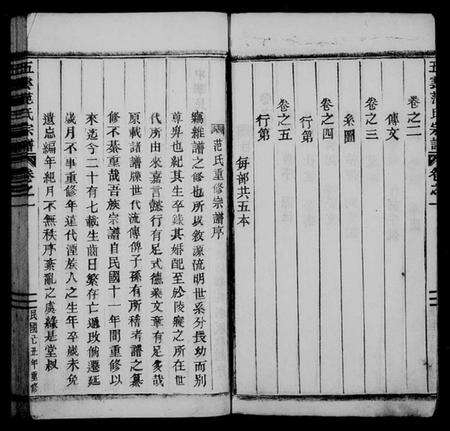 五雲范氏宗譜
卷之一
卷之二
傳文
卷之三
系圖
卷之四
行第
卷之五
行第
每部共五本
范氏重修宗譜序
竊維譜之修也所以敘源流明世系分長幼而別
尊卑也紀其生卒錄其婚配至於陵寢之所在世
代所由來嘉言懿行有足式德業文章有足多哉
原載諸譜牒世代流傳俾子孫有所稽考譜之纂
修不綦重哉吾族宗譜自民國十一年間重修以
來迄今二十有七載生齒日繁存亡遞改倘遷延
歲月不事重修年遠代湮族人之生年卒歲未免
遺忘編年紀月不無秩序紊亂之虞緣是堂叔
五雲范氏宗譜
卷之一
民國己丑年重修